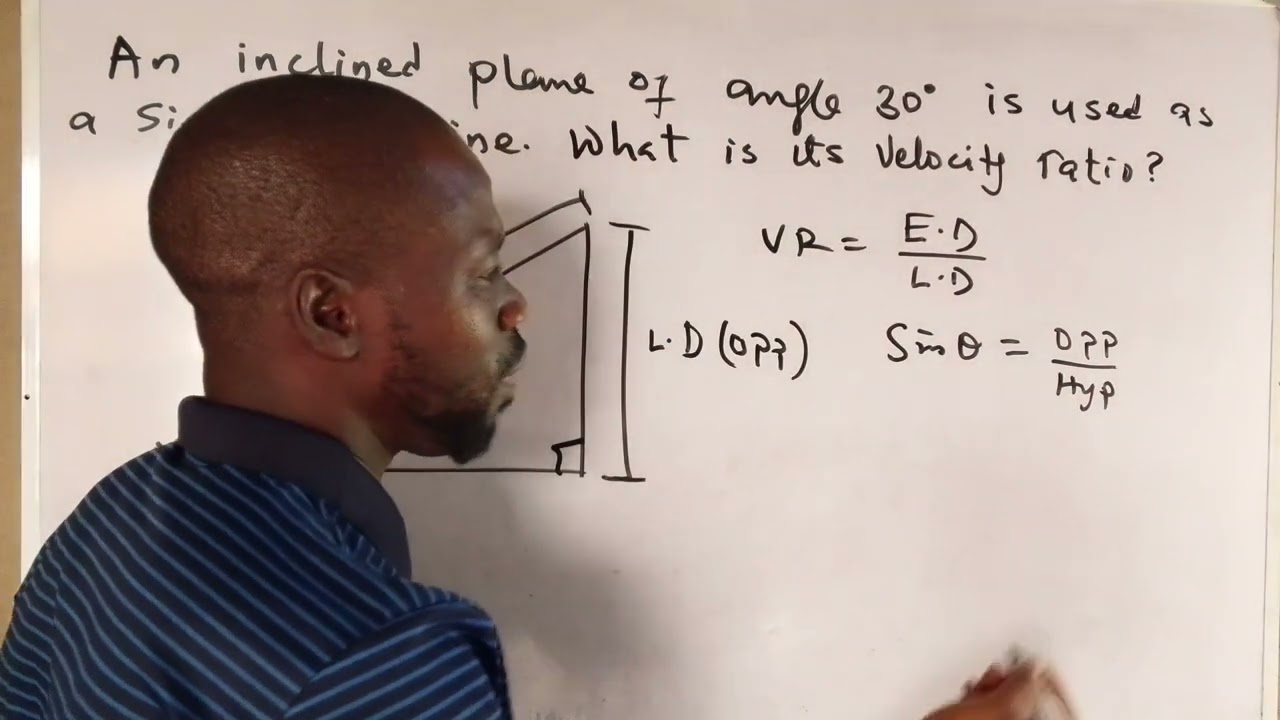 An inclined plane of angle 30° is used as
a Si ine. What is its Velocity ratio?
VR = E.D / L.D
L.D (Opp)
Sin θ = Opp / Hyp